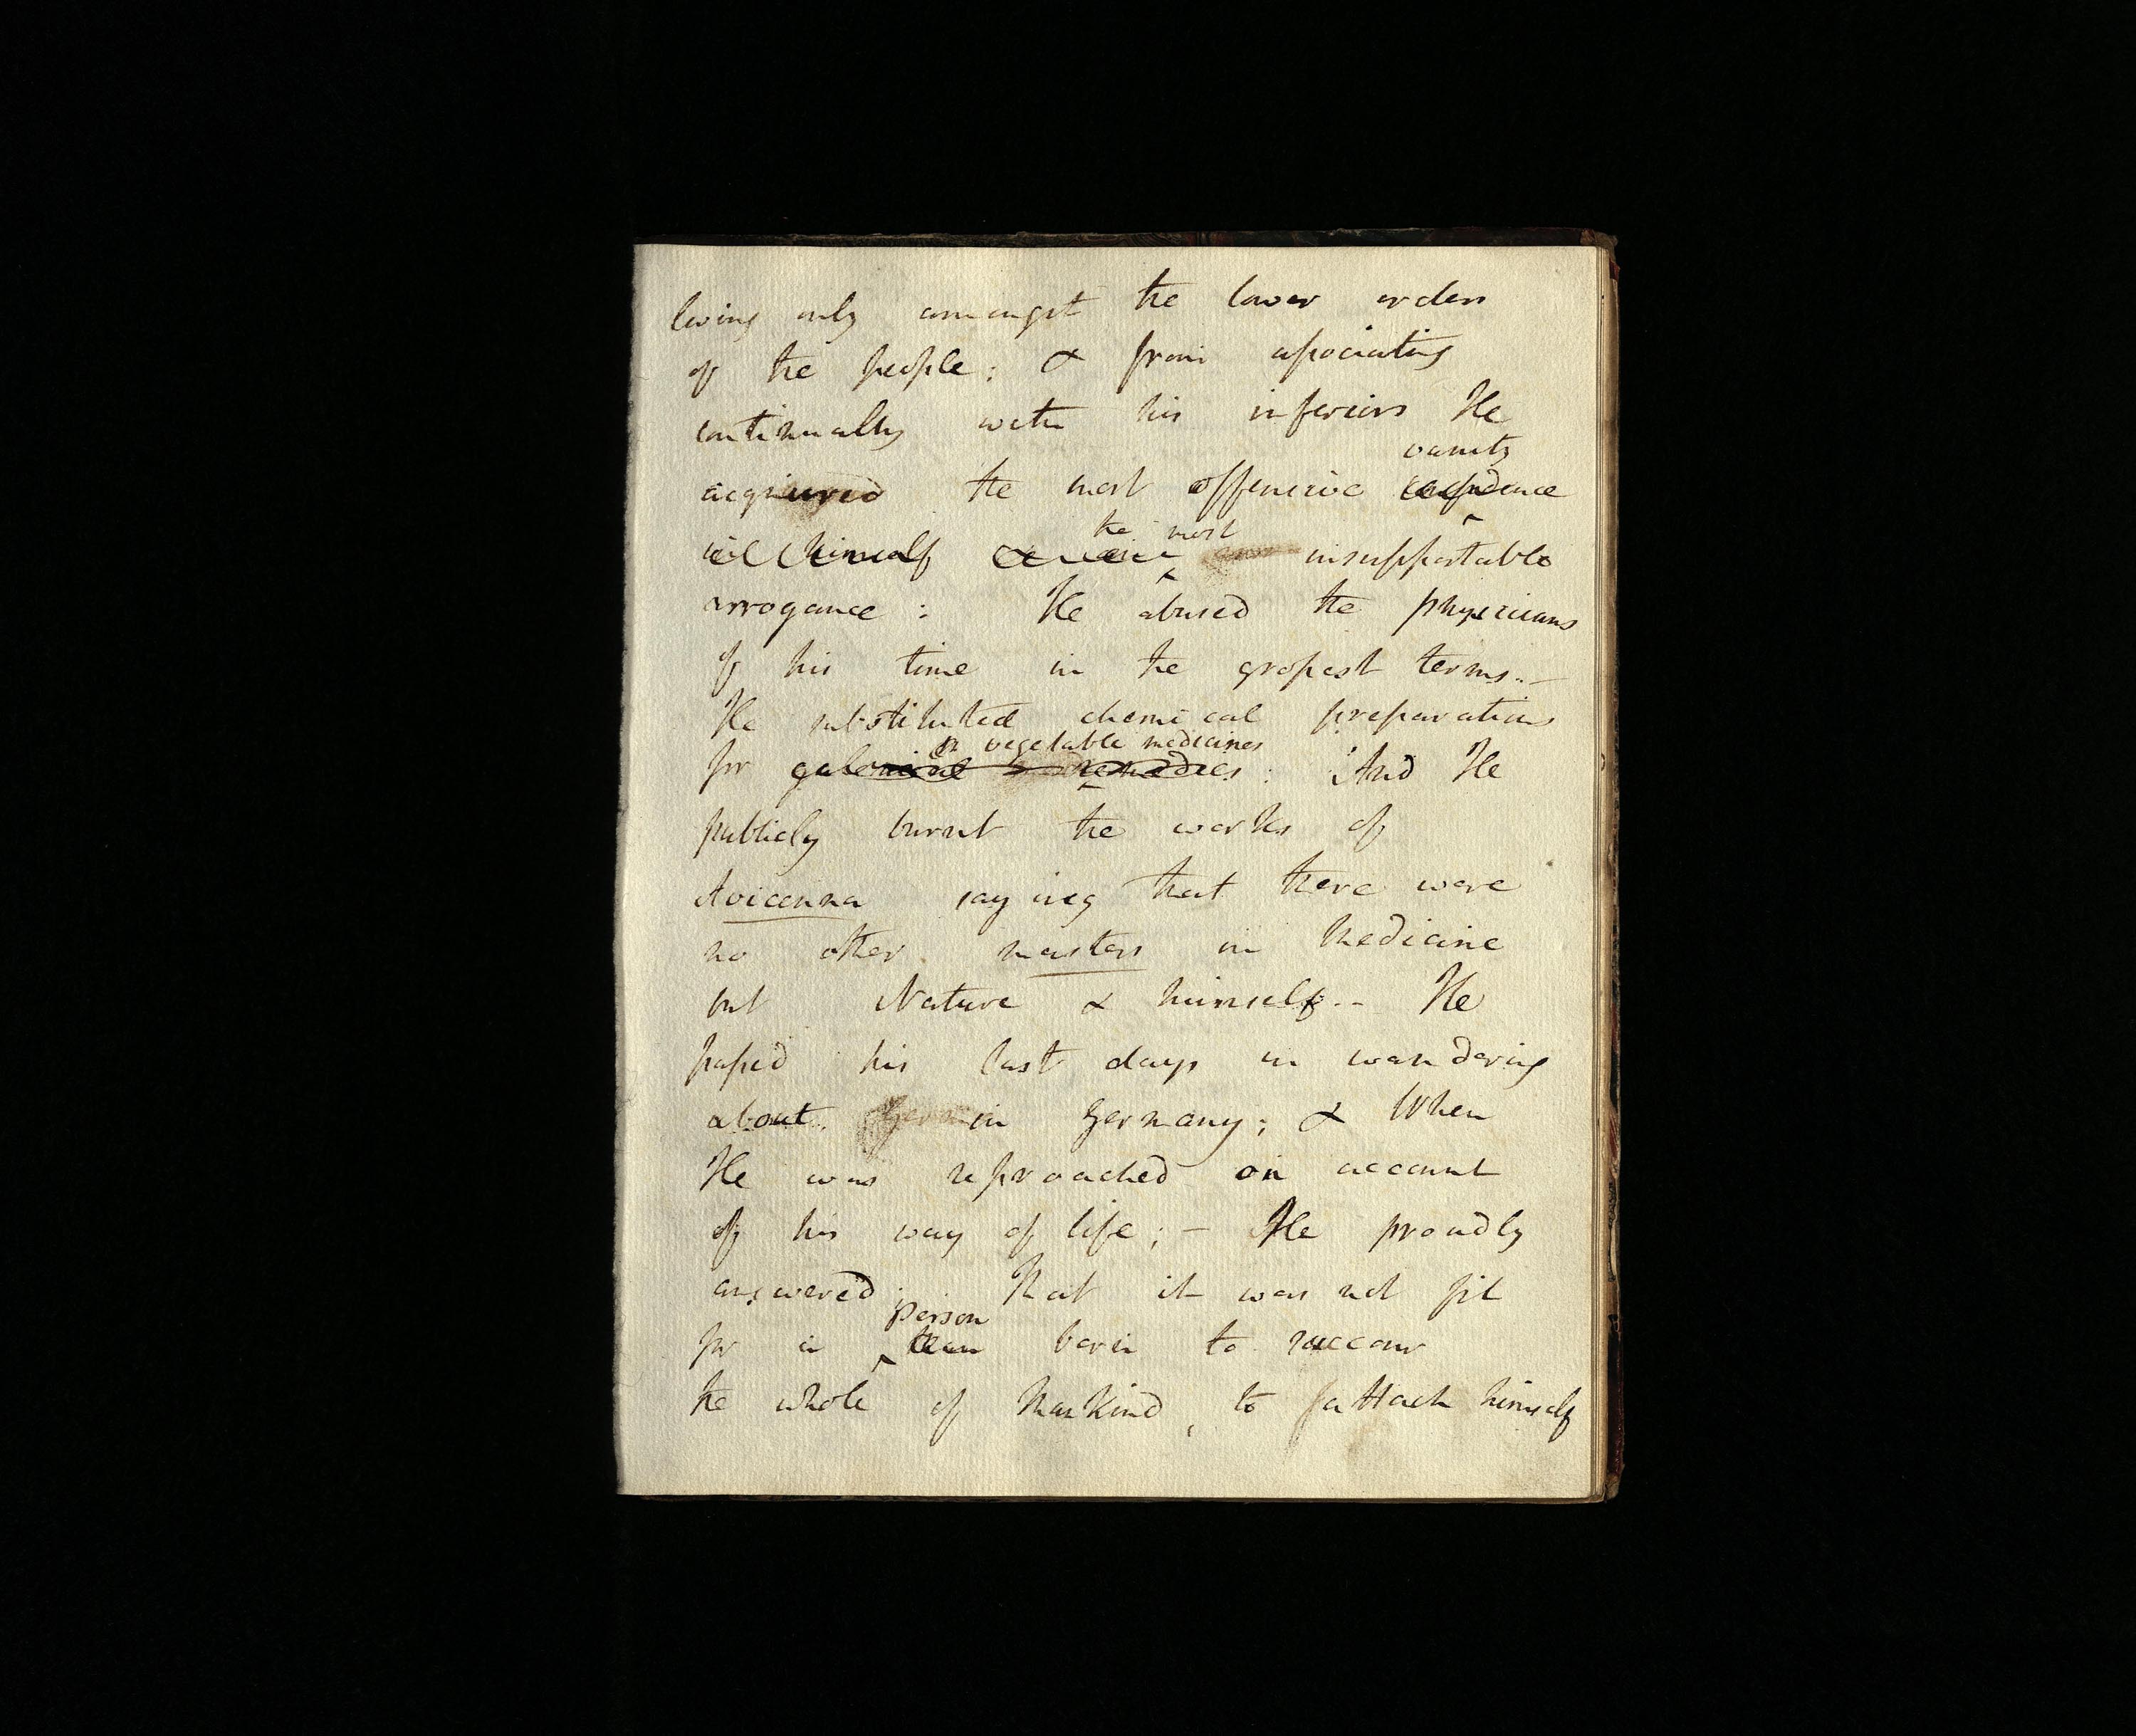 living only amongst the lower orders
of the people; & from associating
continually with his inferiors He
vanity
acquired the most offensive confidence
the most
in himself & insupportable
arrogance: He abused the physicians
of his time in the grossest terms.–
He substituted chemical preparations
or vegetable medicines
for galenical remedies: And He
publicly burnt the works of
Avicenna saying that there were
no other masters in Medicine
but Nature & himself.– He
passed his last days in wandering
about in Germany; & When
He was reproached on account
of his way of life;– He proudly
answered that it was not fit
person
for a man born to succour
the whole of Mankind, to attach himself